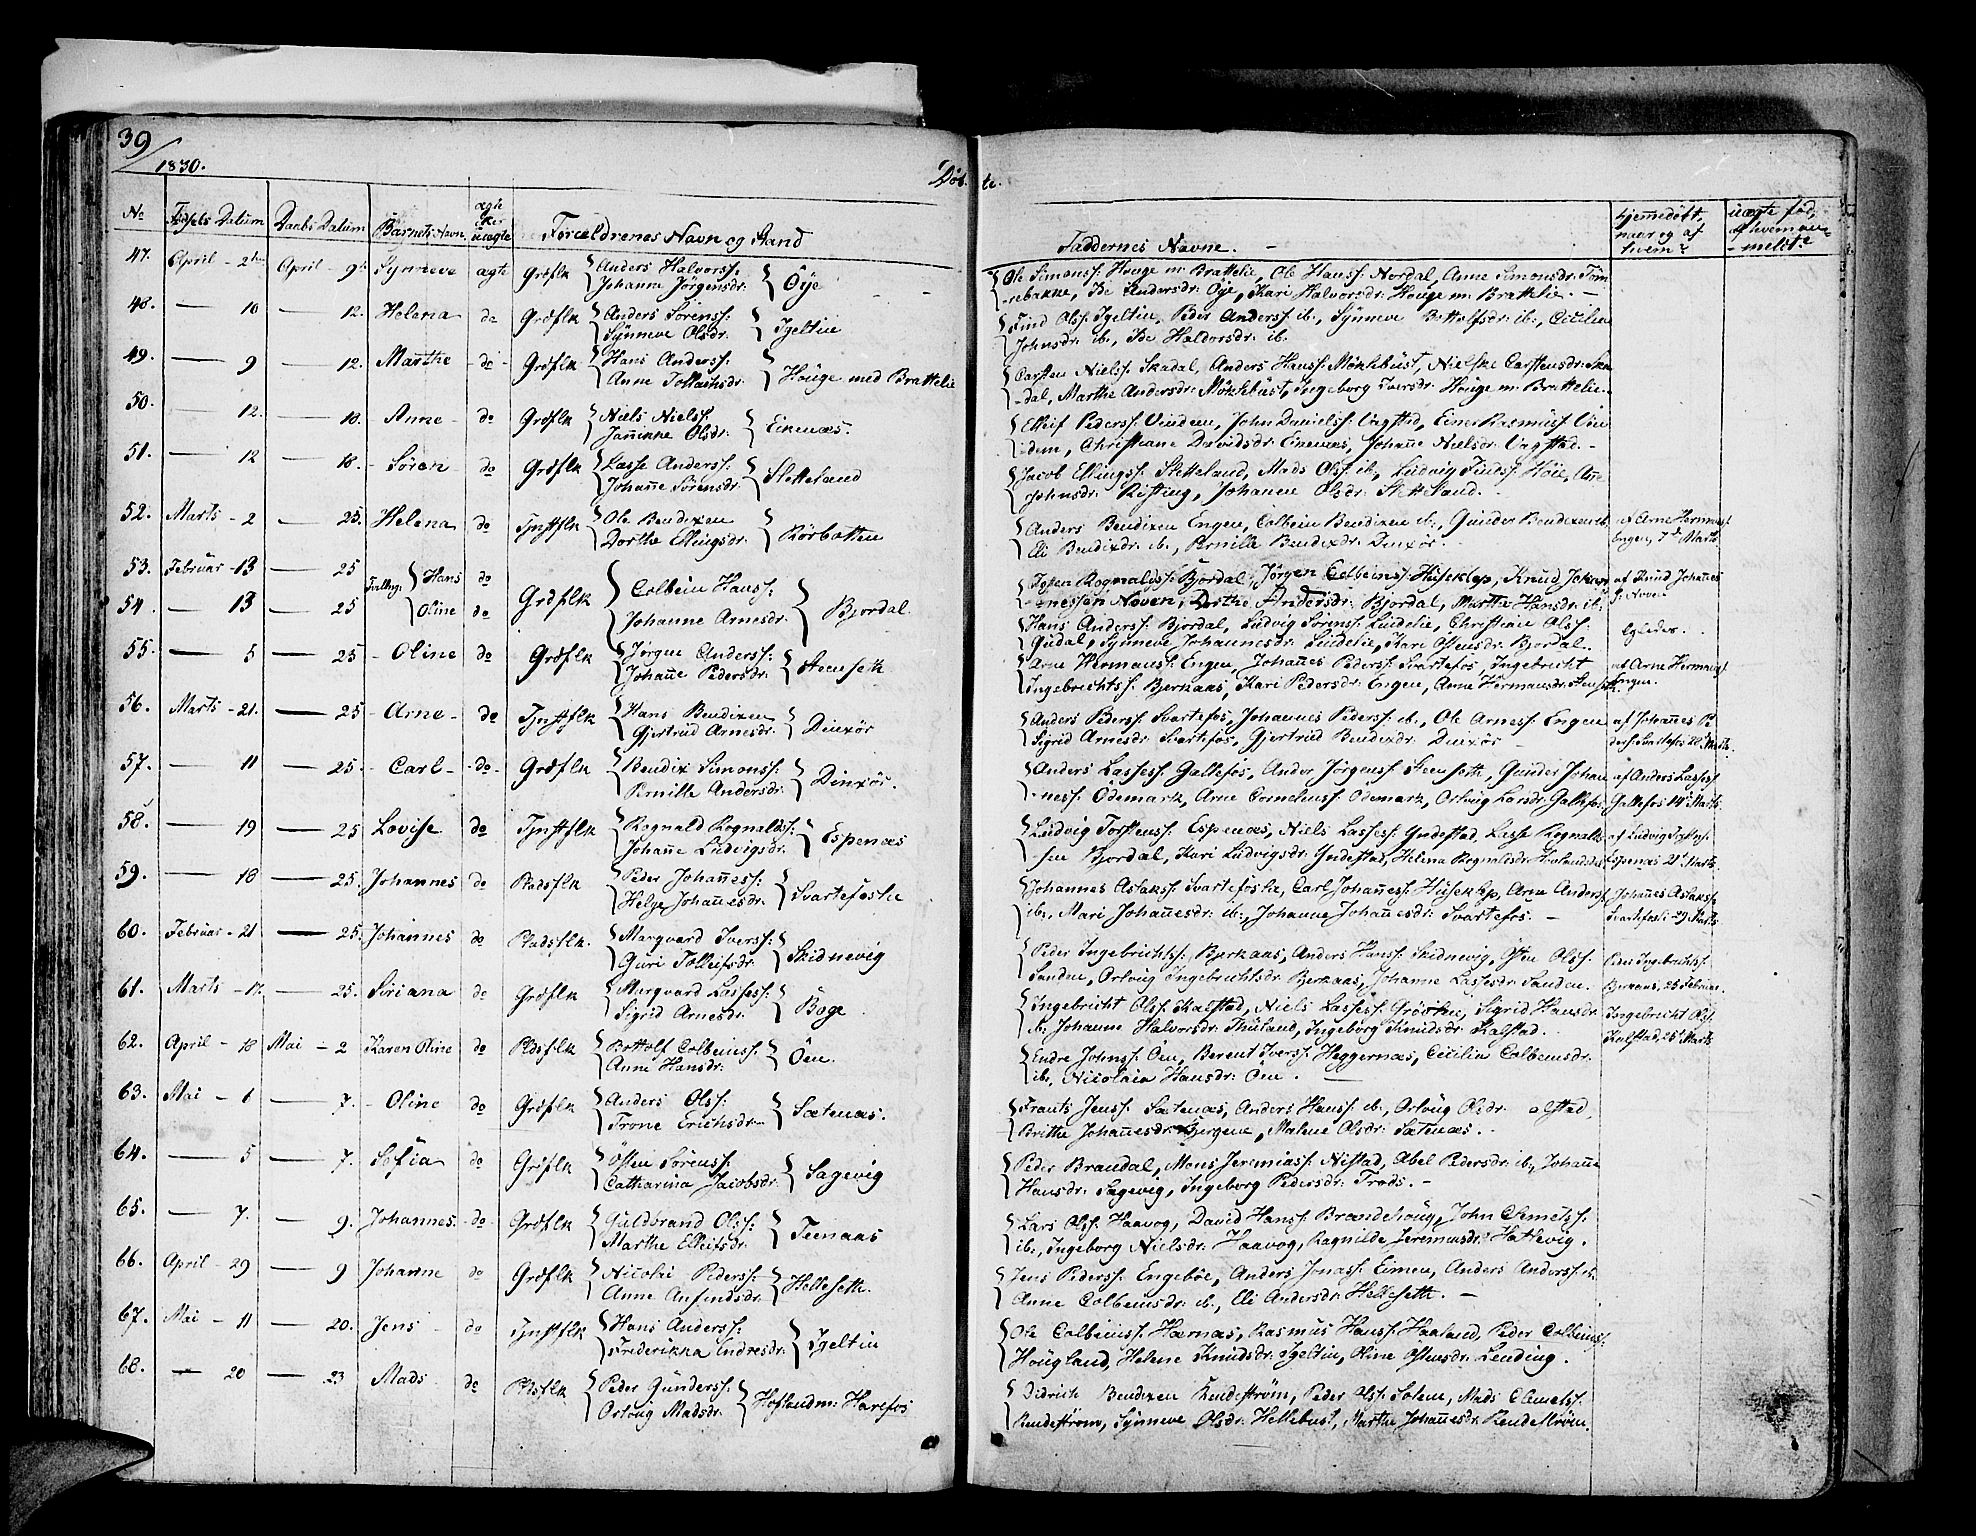 39
1830.
Døb- te.
No Fødsels Datum Daabs Datum Barnets Navn ægte eller uægte Forældrenes Navn og Stand Faddernes Navne. Hjemmedøbt, naar og af hvem? uægte fød, af hvem anmeldt?
47. April - 2den April - 9de Synneve ægte Grdflk Anders Halvorss: Johanne Jørgensdr: Øye
Ole Simonss: Houge m: Brattelie, Ole Hanss: Nordal, Anne Simonsdr:
-rebakke, Ide Andersdr: Øye, Kari Halvorsdr: Houge m: Brattelie. -
48. — 10 — 12. Helena do Grdflk Anders Sørenss: Synneve Olsdr: Igeltin
Find Olss: Igeltin, Peder Anderss: ib:, Synneve Bottolfsdr: ib:, Cicilia
Johnsdr: ib:, Ide Haldorsdr: ib.
49. — 9 — 12. Marthe - do - Grdflk Hans Anderss: Anne Tollachsdr: Houge med Brattelie
Carsten Nielss: Skadal, Anders Hanss: Møklebust, Nielske Carstensdr: Ska
-dal, Marthe Andersdr: Møklebust, Ingeborg Iversdr: Houge m: Brattelie.
50. — 12. — 18. Anne - do Grdflk Niels Nielss: Jannikke Olsdr: Eikenæs
Ellif Pederss: Vindem, John Danielss: Vagstad, Einer Rasmuss: Vin
-dem, Christiane Davidsdr: Eikenæs, Johanne Nielsdr: Vagstad. -
51. — 12 — 18. - Søren do Grdflk Lasse Anderss: Johanne Sørensdr: Stetteland
Jacob Ellingss: Stetteland, Mads Olss: ib:, Ludvig Findss: Høie, Anne
Johnsdr: Risting, Johanne Olsdr: Stetteland. -
52. Marts - 2 — 25. Helena do Tjnstflk Ole Bendixen Dorthe Ellingsdr: Rørbotten
Anders Bendixen Engen, Colbein Bendixen ib:, Gunder Bendixen ib. af Arne Hermanss:
Eli Bendixdr: ib:, Pernille Bendixdr: Dinxør. Engen, 7de Marts
53. Februar - 13 — 25 Tvilling: Hans do
54. — 13 — 25 Oline do Grdflk Colbein Hanss: Johanne Arnesdr: Bjordal
Rognaldss: Bjordal, Jørgen Colbeinss: Huseklep, Knud Johan- af Knud Johannes
-nessen Noven, Dorthe Andersdr: Bjordal, Marthe Hansdr: ib: s: Noven
Hans Anderss: Bjordal, Ludvig Sørenss: Lüdelie, Christian Olss: ligeledes.
Gudal, Synneve Johannesdr: Lüdelie, Kari Olsensdr: Bjordal.
55. — 5 — 25 - Oline do Grdflk Jørgen Anderss: Johanne Pedersdr: Steensæt
Arne Hermanss: Engen, Johannes Pederss: Svartefos, Ingebricht af Arne Hermanss:
Ingebrichtss: Bjerkaas, Kari Pedersdr: Engen, Anne Hermansdr: Engen.
56. Marts - 21. — 25 - Arne - do Tjnstflk Hans Bendixen Gjertrud Arnesdr: Dinxør
Anders Pederss: Svartefos, Johannes Pederss: ib:, Ole Arness: Engen af Johannes Pe
Sigrid Arnesdr: Svartefos, Gjertrud Bendixdr: Dinxør - derss: Svartefos 22 Marts.
57. — 11 — 25. - Carl - - do - Grdflk Bendix Simonss: Pernille Andersdr: Dinxør.
Anders Lassess: Galtefos, Ander Jørgenss: Steensæth, Gunder Johan af Anders Lassess:
-ness: Ødemark, Arne Corneliuss: Ødemark, Orlaug Larsdr: Galtefos Galtefos 14de Marts.
58. — 19 — 25 Lovise do Tjnstflk Rognald Rognaldss: Johanne Ludvigsdr: Espenæs
Ludvig Torstenss: Espenæs, Niels Lassess: Yndestad, Lasse Rognald af Ludvig Torstenss:
-sen Bjordal, Kari Ludvigsdr: Yndestad, Helena Rognaldsdr: Espenæs 21de Marts
59. — 18 — 25. Johannes do Pladsflk Peder Johanness: Helge Johannesdr: Svartefoslie
Johannes Aslakss: Svartefoslie, Carl Johanness: Huseklep, Arne Anderss: Johannes Aslakss:
ib:, Mari Johannesdr: ib:, Johanne Johannesdr: Svartefos. - Svartefosl: 29 Marts.
60. Februar - 21 — 25. Johannes do Pladsflk. Marqvard Iverss: Guri Tolleifsdr: Skidnevig
Peder Ingebrichtss: Bjerkaas, Anders Hanss: Skidnevig, Osten Olss: Peder Ingebrichtss:
Sanden, Orlaug Ingebrichtsdr: Bjerkaas, Johanne Lassesdr: Sanden. Bjerkaas, 25 Februar.
61. Marts - 17. — 25. Siriana do Grdflk Marqvard Lassess: Sigrid Arnesdr: Boge
Ingebricht Olss: Kalstad, Niels Lassess: Sigrid Hansdr: Ingebricht Olss:
ib: Johanne Halvorsdr: Thuland, Ingeborg Knudsdr: Kalstad. Kalstad, 25 Marts
62. April - 18 Mai - 2 Karen Oline do Pldsflk Bottolf Colbeinss: Anne Hansdr: Öen.
Endre Johnss: Öen, Berent Iverss: Heggernæs, Cicilia Colbeinsdr:
ib:, Nicolaia Hansdr: Öen. —
63. Mai - 1 — 7. - Oline do Grdflk Anders Olss: Trone Erichsdr: Sætenæs.
Frants Jenss: Sætenæs, Anders Hanss: ib:, Orlaug Olsdr: alstad,
Brithe Johannesdr: Bjergene, Malene Olsdr: Sætenæs. -
64. — 5 — 7. Sofia do Grdflk Østen Sørenss: Catharina Jacobsdr: Sagevig
Peder Brandal, Mons Jeremiass: Nistad, Abel Pedersdr: ib:, Johanne
Hansdr: Sagevig, Ingeborg Pedersdr: Trods. -
65. — 7. — 9. Johannes. - do - Grdflk Guldbrand Olss: Marthe Elleifsdr: Teenaas
Lars Olss: Haavog, David Hanss: Brandehoug, John Clemetss:
ib:, Ingeborg Nielsdr: Haavog, Ragnilde Jeremiasdr: Hatlevig.
66. April - 29 — 9 Johanne do Grdflk Nicolai Pederss: Anne Anfindsdr: Hellesæth.
Jens Pederss: Engebøe, Anders Jonass: Eimen, Anders Anderss: ib:
Anne Colbeinsdr: ib:, Eli Andersdr: Hellesæth. -
67. Mai - 11 — 20. Jens - do Tjnstflk Hans Anderss: Frederikka Endresdr: Igeltin
Ole Colbeinss: Hærnæs, Rasmus Hanss: Haaland, Peder Colbeinss:
Hougland, Helene Knudsdr: Igeltin, Oline Østensdr: Lending.
68. — 20 — 23 Mads do Pldsflk Peder Gunderss: Orlaug Madsdr: Hofland m: Harefos
Didrich Bendixen Rendestrøm, Peder Olss: Solem, Mads Clemetss:
Rendestrøm, Synneve Olsdr: Hellebust, Marthe Johannesdr: Rendestrøm.